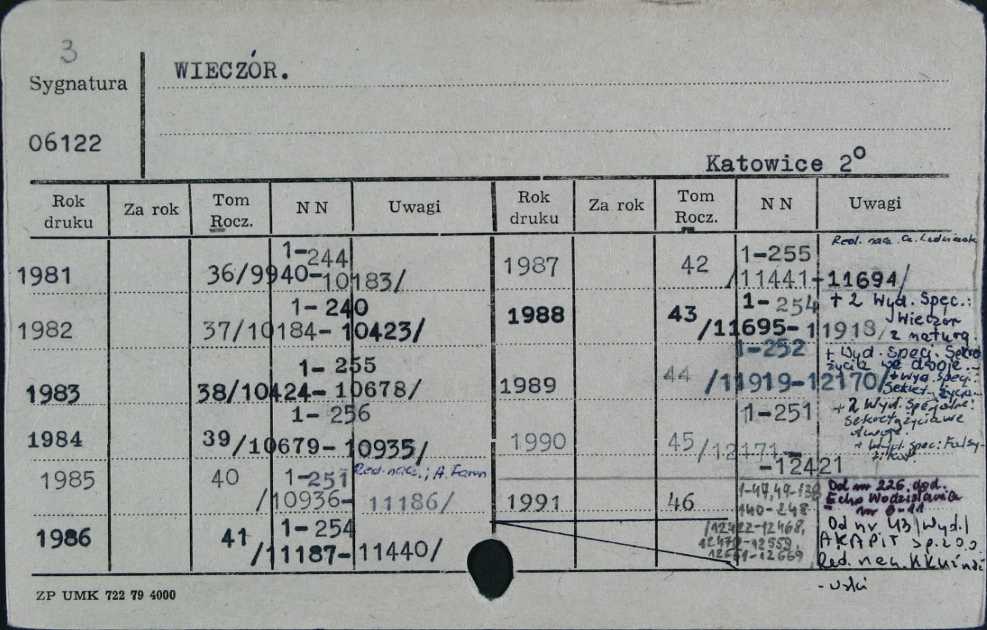 3
Sygnatura
WIECZÓR.
06122
Katowice 2º
Rok druku Za rok Tom Rocz. N N Uwagi Rok druku Za rok Tom Rocz. N N Uwagi
1-244
1981 36/9940-10183/
1-240
1982 37/10184-10423/
1-255
1983 38/10424-10678/
1-256
1984 39/10679-10935/
1985 40 1-251 Red. nacz.; A.
/10936-11186/
1986 41 1-254
/11187-11440/
Red. nacz.
1987 42 1-255
/11441-11694/
1988 43 1-254 + 2 Wyd. Spec.:
/11695-11918/ Wieczór
z naturą
1-252 + Wyd. Spec. Sekret
życia we dwoje
1989 44 /11919-12170/ + Wyd. spec.:
1-251 + 2 Wyd. Specjalne:
Sekrety życia we
dwoje.
1990 45 /12171- + Wyd. spec:
-12421
1991 46 1-47, 49-138 Od nr 226 dod.
140-248 Echo Wodzisławia
nr 0-11
/12422-12468, Od nr 43 /Wyd./
12470-12559, AKAPIT Sp. z o.o.
12561-12669 Red. nacz.
ZP UMK 722 79 4000